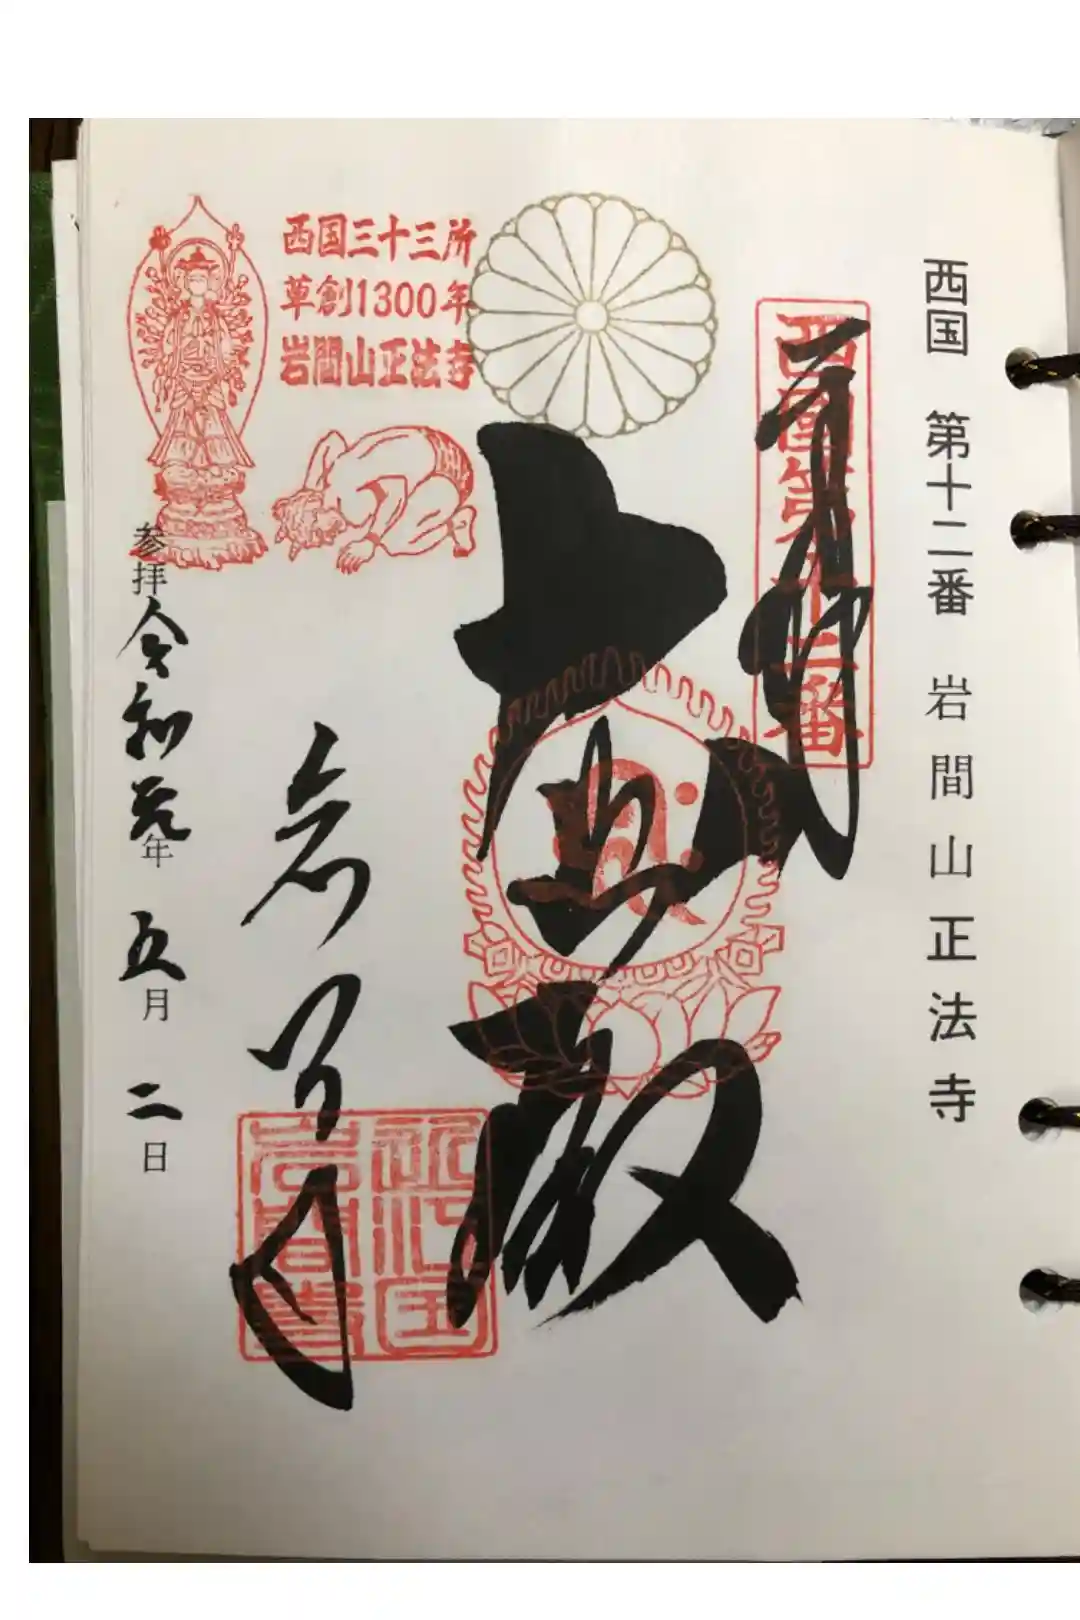 西国 第十二番 岩間山正法寺
西國第十二番
奉拝
大悲殿
岩間寺
西国三十三所
草創1300年
岩間山正法寺
参拝 令和元年 五月 二日